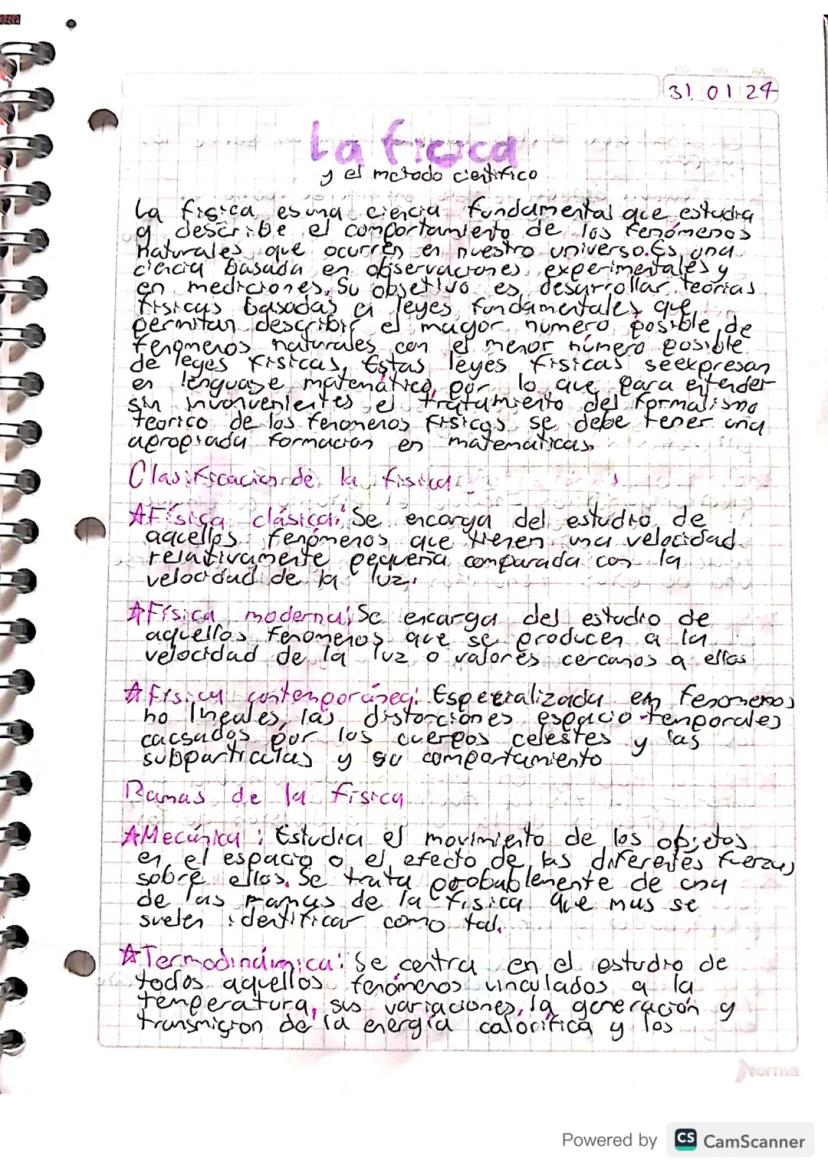 31 01 24
La física
y el metodo cientifico
La fisica es una ciencia fundamental que estudia
y describe el comportamiento de los fenómenos
naturales que ocurren en nuestro universo. Es una
ciencia basada en observaciones experimentales y
en mediciones. Su objetivo es desarrollar teorias
fisicas basadas en leyes fundamentales que
permitan describir el mayor numero posible de
fenomenos naturales con el menor número posible
de leyes fisicas, Estas leyes fisicas se expresan
en lenguaje matemático, por lo que para entender
sin inconvenientes el tratamiento del formalismo
teorico de los fenomenos fisicos se debe tener una
apropiada formacion en matematicas.
Clasificacion de la fisica
☆Física clásica: Se encarga del estudio de
aquellos fenómenos que tienen una velocidad
relativamente pequeña comparada con la
velocidad de la luz.
☆Física moderna: Se encarga del estudio de
aquellos fenomenos que se producen a la
velocidad de la luz o valores cercanos a ellos
☆fisica contemporánea: Especializada en fenomenos
no lineales, las distorciones espacio-temporales
causados por los cuerpos celestes y las
subparticulas y su comportamiento
Ramas de la física
☆Mecánica: Estudia el movimiento de los objetos
en el espacio o el efecto de las diferentes fuerzas
sobre ellos. Se trata probablemente de una
de las ramas de la física que mas se
suelen identificar como tal.
☆Termodinámica: Se centra en el estudio de
todos aquellos fenómenos vinculados a la
temperatura, sus variaciones, la generación y
transmision de la energía calorífica y los
Norma
Powered by CS CamScanner